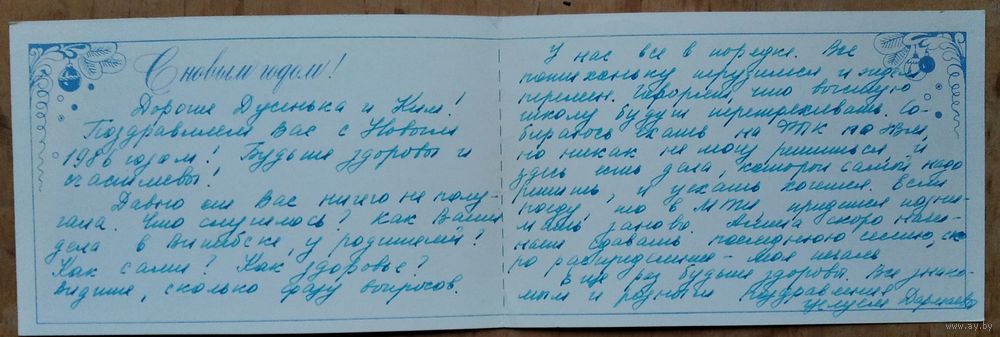 С новым годом!
Дорогие Дусенька и Ким!
Поздравляем Вас с Новым
1986 годом! Будьте здоровы и
счастливы!
Давно от Вас ничего не полу-
чала. Что случилось? Как Ваши
дела в Витебске, у родителей?
Как сами? Как здоровье?
Видите, сколько сразу вопросов.
У нас все в порядке. Все
потихоньку трудимся и ждем
перемен. Говорят, что высшую
школу будут перетряхивать. Со-
бираюсь ехать на ФПК на 
но никак не могу решиться, и
здесь есть дела, которые самой надо
решить, и уехать хочется. Если
поеду, то в придется 
мать заново. скоро начи-
нает сдавать последнюю сессию, ско-
ро распределение - 
Еще раз будьте здоровы. Все знако-
мым и родным поздравления
Целуем
www.ay.by